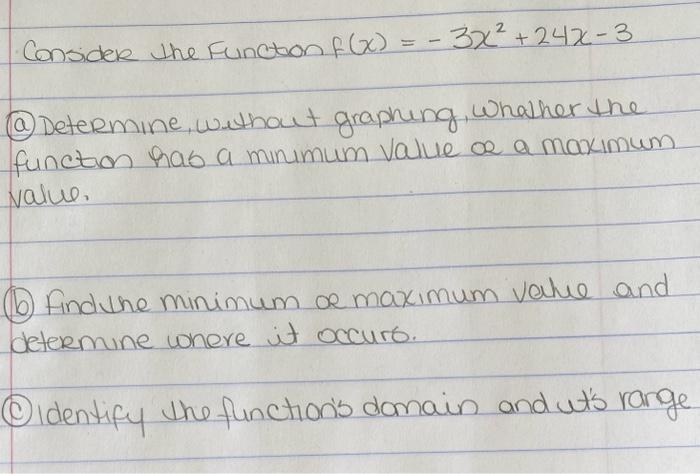 Consider the Function f(x) = - 3x² + 24x - 3
ⓐ Determine, without graphing, whather the
function has a minimum value or a maximum
value.
ⓑ find the minimum or maximum value and
determine where it occurs.
ⓒ Identify the function's domain and it's range